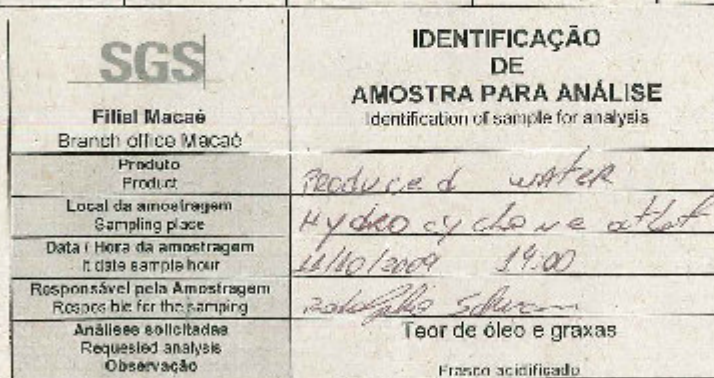 SGS
Filial Macaé
Branch office Macaé
IDENTIFICAÇÃO
DE
AMOSTRA PARA ANÁLISE
Identification of sample for analysis
Produto
Product
Produced water
Local da amostragem
Sampling place
Hydrocyclone
Data / Hora da amostragem
It date sample hour
/10/2009 19:00
Responsável pela Amostragem
Resposible for the samping
Análises solicitadas
Requested analysis
Observação
Teor de óleo e graxas
Frasco acidificado